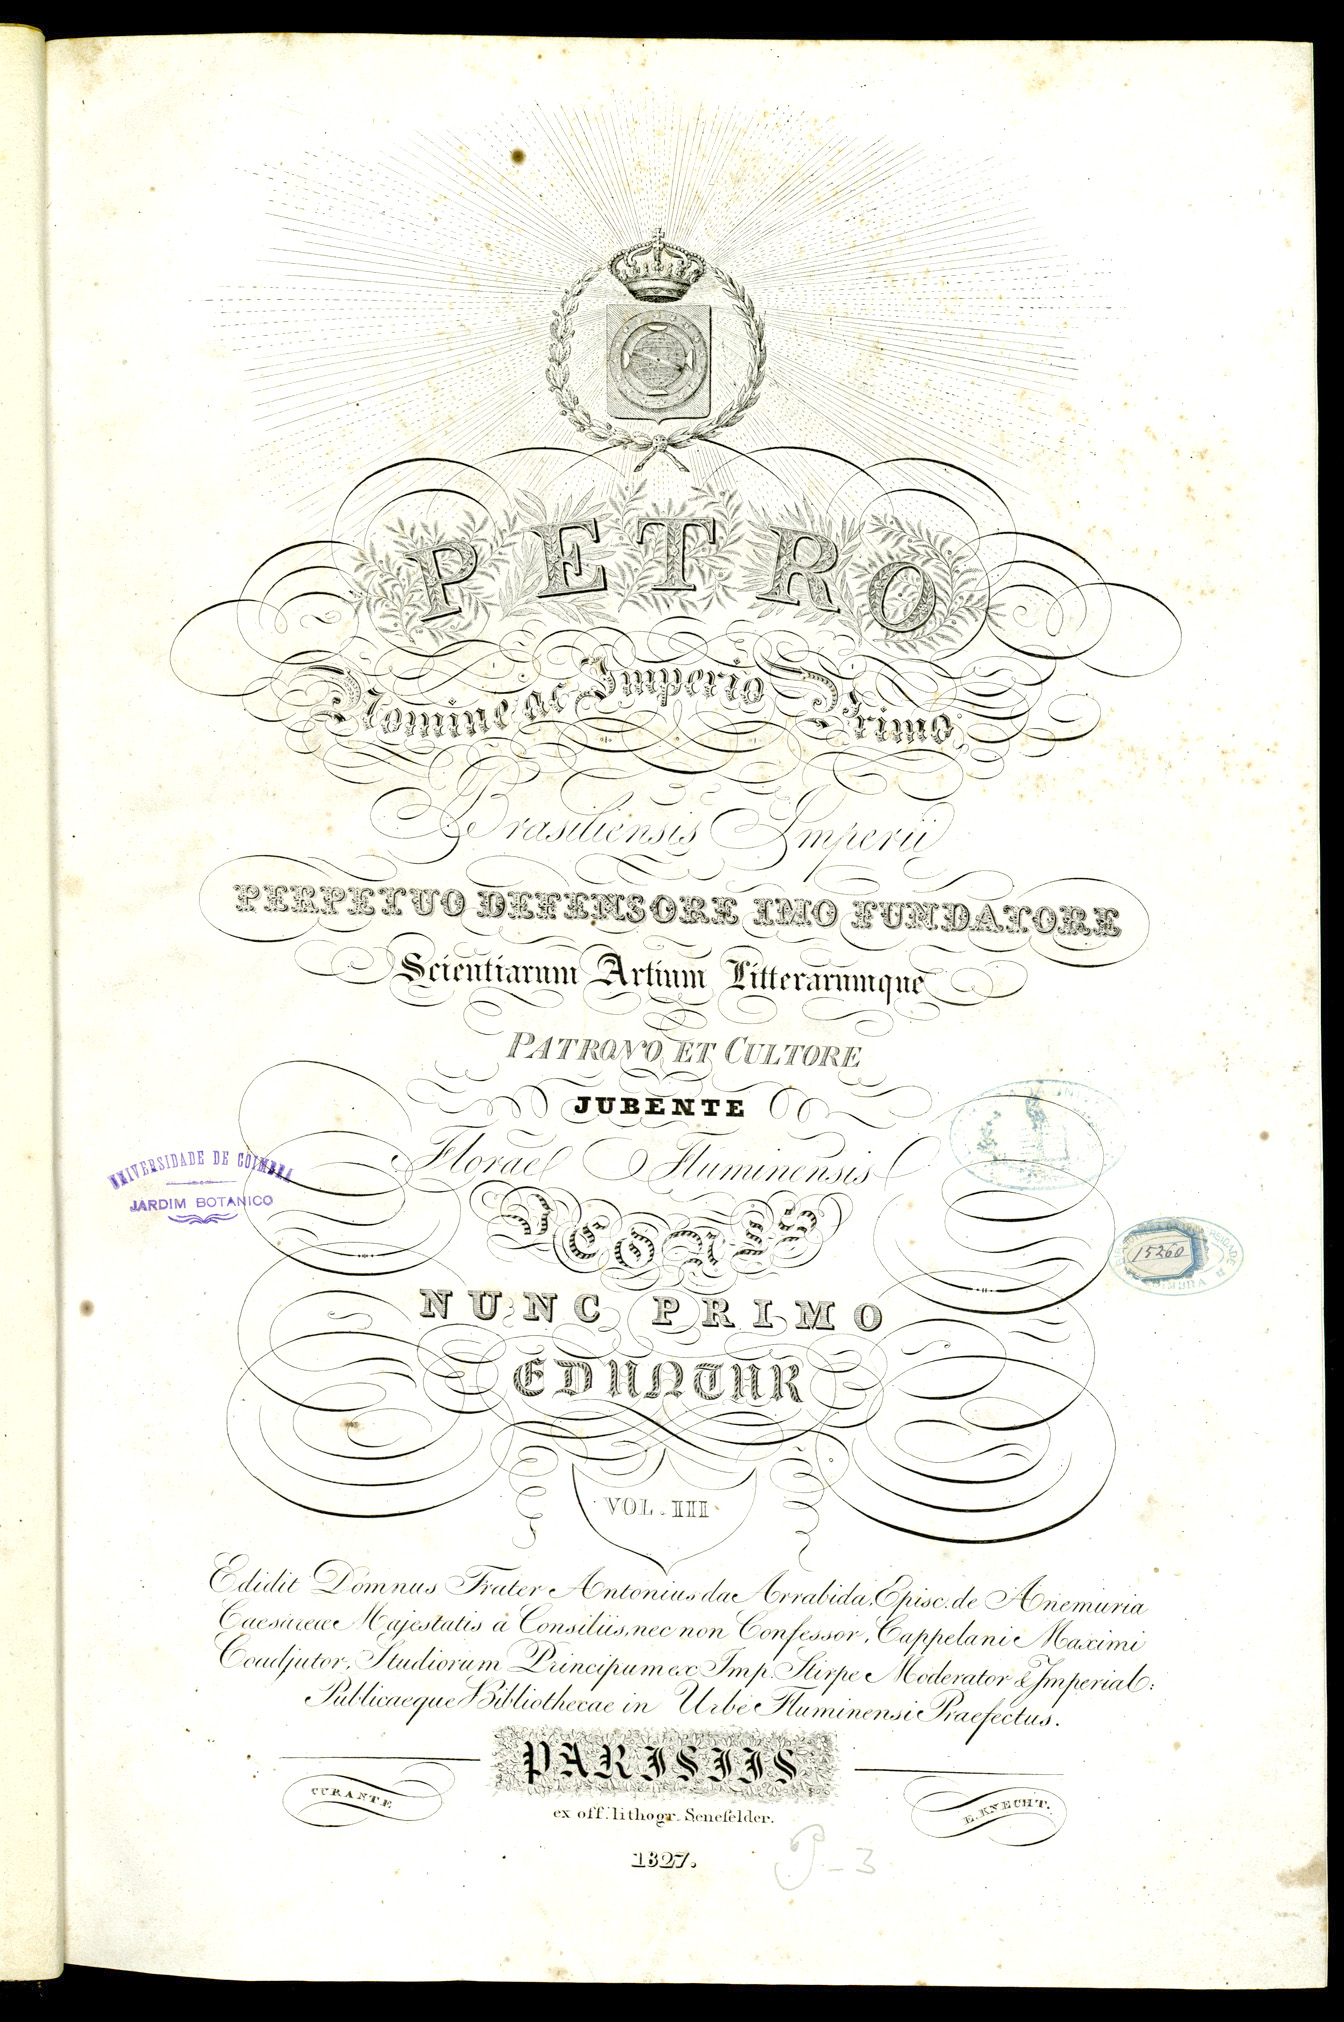 PETRO
Nomine ac Imperio Primo
Brasiliensis Imperii
PERPETUO DEFENSORE IMO FUNDATORE
Scientiarum Artium Litterarumque
PATRONO ET CULTORE
JUBENTE
Florae Fluminensis
ICONES
NUNC PRIMO
EDUNTUR
VOL. III
Edidit Domnus Frater Antonius da Arrabida, Episc. de Anemuria
Caesareae Majestatis a Consiliis, nec non Confessor, Cappelani Maximi
Coadjutor, Studiorum Principum ex Imp. Stirpe Moderator & Imperial:
Publicaeque Bibliothecae in Urbe Fluminensi Praefectus.
PARISIIS
CURANTE
E. KNECHT.
ex off. lithogr. Senefelder.
1827.
P-3
UNIVERSIDADE DE COIMBRA
JARDIM BOTANICO
15260
COIMBRA